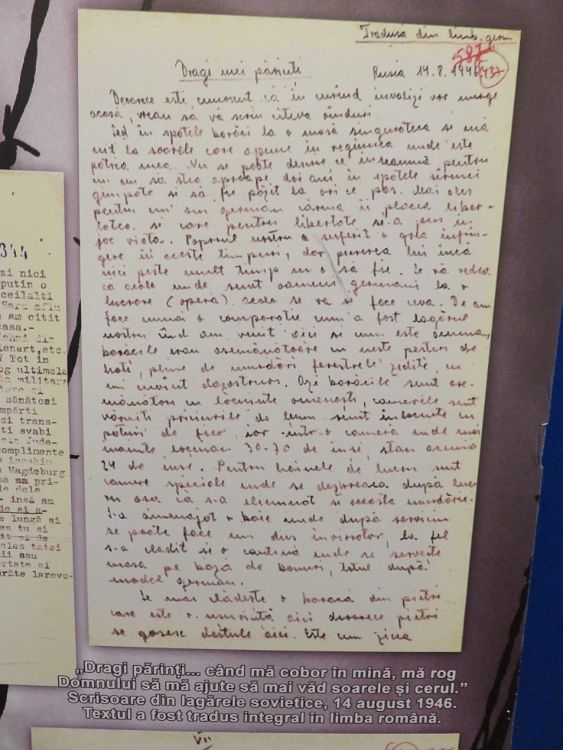 Tradusă din limb. germ
587
437
Dragi mei părinți
Rusia 14.8.1946
Deoarece este cunoscut că în curînd invalizii vor merge
acasă, vreau să vă scriu cîteva rînduri.
în spatele barăci la o masă singuratecă și mă
uit la soarele care apune în regiunea unde este
patria mea. Nu se poate descrie ce înseamnă pentru
un om să stea aproape doi ani în spatele sîrmei
ghimpate și să fie păzit la ori ce pas. Mai ales
pentru un om german căruia îi place liber-
tatea și care pentru libertate și-a pus în
joc viața. Poporul nostru a suferit o grea înfrîn-
gere în aceste timpuri, dar părerea lui încă
nici peste mult timp nu o să fie. Se vă vedea
că acolo unde sunt oameni germani la o
lucrare (operă) acolo se va și face ceva. De am
face numa o comparație cum a fost lagărul
nostru cînd am venit aici și cum este acuma,
barăcile erau asemănătoare cu niște peșteri de
hoți, pline de murdării ferestrele zidite cu
un miros dezastruos. Azi barăcile sunt ase-
mănători cu locuințe omenești, camerele sunt
văruite priciurile de lemn sunt înlocuite cu
paturi de fier, iar într-o cameră unde mai
înainte locuiau 30-70 de inși, stau acuma
24 de inși. Pentru hainele de lucru sunt
camere speciale unde se dezbracă după lucru
cu asta că s-a eliminat și această murdărie.
S-a amenajat o baie unde după serviciu
se poate face un duș înviorător, la fel
s-a clădit și o cantină unde se servește
masa pe bază de bonuri, totul după
model german.
Se mai clădește o baracă din pietri
care este o ușurință aici deoarece pietri
se găsesc destule aici. Este um ziua
344
zi nici
putin o
ceilalti
am citit
casa.-
enert,etc.
Tot in
og ultimele
a militare
sănătosi
mpărti
si trans-
ti avabi
complimente
Magdeburg
ma pri-
insă am
lungă si
es tu si
ales tatei
ii amu
ertate si
„Dragi părinți... când mă cobor în mină, mă rog
Domnului să mă ajute să mai văd soarele și cerul.”
Scrisoare din lagărele sovietice, 14 august 1946.
Textul a fost tradus integral în limba română.
VII